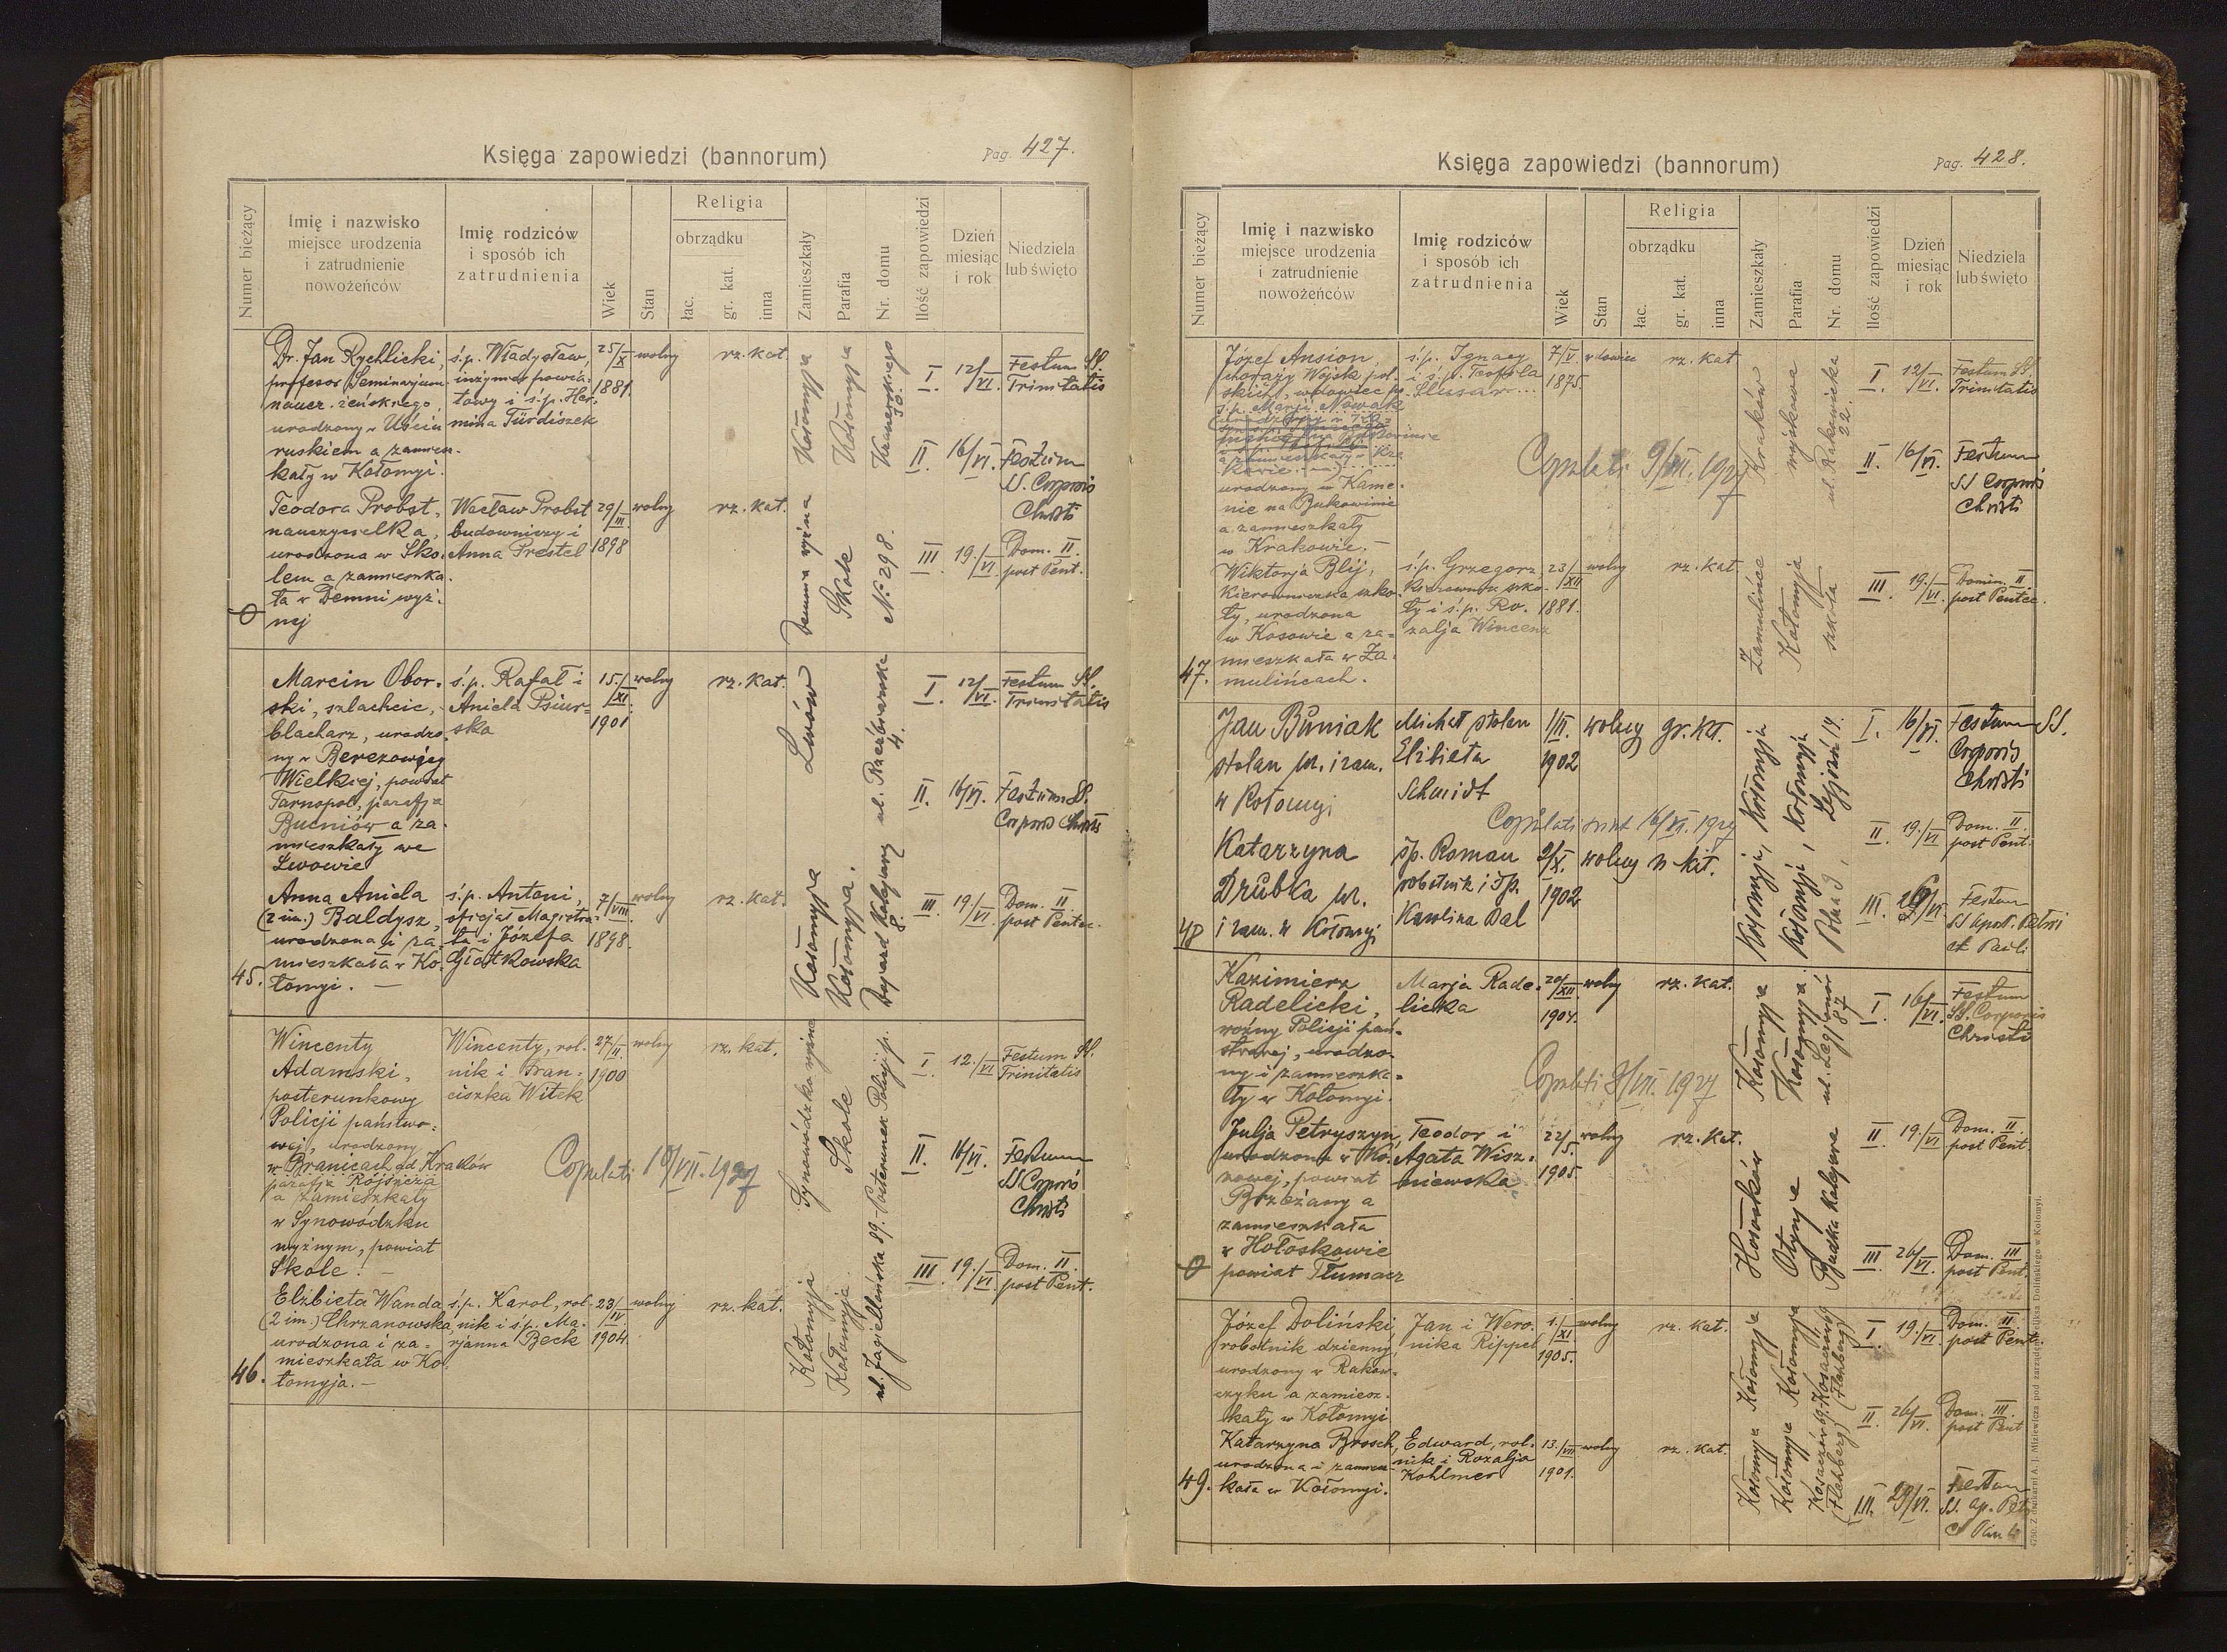 Księga zapowiedzi (bannorum)
Pag. 427.
Numer bieżący
Imię i nazwisko
miejsce urodzenia
i zatrudnienie
nowożeńców
Imię rodziców
i sposób ich
zatrudnienia
Wiek
Stan
Religia
obrządku
łac.
gr. kat.
inna
Zamieszkały
Parafia
Nr. domu
Ilość zapowiedzi
Dzień
miesiąc
i rok
Niedziela
lub święto
Dr. Jan Rychlicki,
profesor Seminarjum
naucz. żeńskiego,
urodzony w Uściu
ruskiem a zamiesz-
kały w Kołomyi.
ś.p. Władysław,
inżynier powia-
towy i ś.p. Her-
mina Türdiszek
25/X
1881.
wolny
rz. kat.
Kołomyja
Kołomyja
30.
I. 12/VI. Festum SS.
Trinitatis
II. 16/VI. Festum
SS. Corporis
Christi
Teodora Probst,
nauczycielka,
urodzona w Sko-
lem a zamieszka-
ła w Demni wyż-
nej
Wacław Probst
budowniczy i
Anna Prestel
29/III
1898
wolny
rz. kat.
Demnia wyżna
Skole
No 298.
III 19./VI Dom. II.
post Pent.
0
Marcin Obor-
ski, szlachcic,
blacharz, urodzo-
ny w Berezowicy
Wielkiej, powiat
Tarnopol, parafja
Bucniów a za-
mieszkały we
Lwowie
ś.p. Rafał i
Aniela Psiur-
ska
15./XI
1901
wolny
rz. kat.
Lwów
ul. Racławicka
4.
I. 12/VI. Festum SS.
Trinitatis
II. 16/VI. Festum SS.
Corporis Christi
Anna Aniela
(2 im.) Baldysz,
urodzona i za-
mieszkała w Ko-
łomyi. —
ś.p. Antoni,
oficjał Magistra-
tu i Józefa
Giatkowska
7/VIII
1898.
wolny
rz. kat.
Kołomyja
Kołomyja.
Dojazd Kolejowy
8.
III. 19/VI. Dom. II.
post Pentec.
45.
Wincenty
Adamski,
posterunkowy
Policji państwo-
wej, urodzony
w Branicach ad Kraków
parafja Rójszcza
a zamieszkały
w Synowódzku
wyżnym, powiat
Skole. —
Wincenty, rol-
nik i Fran-
ciszka Witek
27/II.
1900
wolny
rz. kat.
Synowódzko wyżne
Skole
Posterunek Policji p.
I. 12./VI Festum SS.
Trinitatis
Copulati 10/VII. 1927
II. 16/VI. Festum
SS Corporis
Christi
III. 19./VI Dom. II.
post Pent.
Elżbieta Wanda
(2 im.) Chrzanowska,
urodzona i za-
mieszkała w Ko-
łomyja. —
ś.p. Karol, rol-
nik i ś.p. Ma-
rjanna Beck
23/IV
1904
wolny
rz. kat.
Kołomyja
Kołomyja
ul. Jagiellońska 89.
46.
Księga zapowiedzi (bannorum)
Pag. 428.
Numer bieżący
Imię i nazwisko
miejsce urodzenia
i zatrudnienie
nowożeńców
Imię rodziców
i sposób ich
zatrudnienia
Wiek
Stan
Religia
obrządku
łac.
gr. kat.
inna
Zamieszkały
Parafia
Nr. domu
Ilość zapowiedzi
Dzień
miesiąc
i rok
Niedziela
lub święto
Józef Ansion,
chorąży Wojsk pol-
skich, wdowiec po
ś.p. Marji Nowak
urodzony w Kame-
nie na Bukowinie
a zamieszkały
w Krakowie. —
ś.p. Ignacy
i ś.p. Teofila
Slusar
7/V.
1875.
wdowiec
rz. kat
Kraków
wojskowa
ul. Rakowicka
22.
I. 12/VI. Festum SS.
Trinitatis
Copulati 9/VII. 1927
II. 16/VI. Festum
SS Corporis
Christi
Wiktorja Blij,
Kierowniczka szko-
ły, urodzona
w Kosowie a za-
mieszkała w Za-
mulińcach.
ś.p. Grzegorz
Kierownik szko-
ły i ś.p. Ro-
zalja Wincenz
23/XII
1881.
wolny
rz. kat
Zamulińce
Kołomyja
szkoła
III 19./VI. Domin. II
post Pentec.
47.
Jan Buniak
stolarz ur. i zam.
w Kołomyi
Michał stolarz
Elżbieta
Schmidt
1/II.
1902
wolny gr. kt.
Kołomyja
Kołomyja
Legjonów 14.
I. 16/VI. Festum SS.
Corporis
Christi
Copulati sunt 16/VI. 1927
II. 19./VI Dom. II.
post Pent.
Katarzyna
Drubka ur.
i zam. w Kołomyi
śp. Roman
robotnik i śp.
Karolina Dal
2/X.
1902
wolny rz kat.
Kołomyja,
Kołomyja,
Polna 9,
III. 29/VI. Festum
SS Apost. Petri
et Pauli
48
Kazimierz
Radelicki,
woźny Policji pań-
stwowej, urodzo-
ny i zamieszka-
ły w Kołomyi.
Marja Rade-
licka
20/XII
1904.
wolny
rz. kat.
Kołomyja
Kołomyja.
ul. Legjonów
87
I. 16/VI. Festum
SS. Corporis
Christi
Copulati 3/VII. 1927
Julja Petryszyn,
urodzona w Ko-
nowej, powiat
Brzeżany a
zamieszkała
w Hołoskowie
powiat Tłumacz
Teodor i
Agata Wisz-
niewska
22/5.
1905.
wolny
rz. kat.
Hołosków
Otynja
Budka Kolejowa
II. 19./VI Dom. II.
post Pent
III. 26/VI. Dom. III
post Pent.
0
Józef Doliński,
robotnik dzienny,
urodzony w Rakow-
czyku a zamiesz-
kały w Kołomyi
Jan i Wero-
nika Rippel
1./XI
1905.
wolny
rz. kat.
Kołomyja
Kołomyja
Kosaczów 69
(Flehberg)
I 19./VI. Dom. II
post Pent.
II. 26/VI. Dom. III.
post Pent
Katarzyna Brosch,
urodzona i zamiesz-
kała w Kołomyi.
Edward, rol-
nik i Rozalja
Kohlmer
13./VII
1901.
wolny
rz. kat.
Kołomyja
Kołomyja
Kosaczów 69.
(Flehberg)
III. 29/VI. Festum
SS. Ap. Petri
et Pauli
49.
4750. Z drukarni A. J. Miziewicza pod zarządem Feliksa Dolińskiego w Kołomyi.